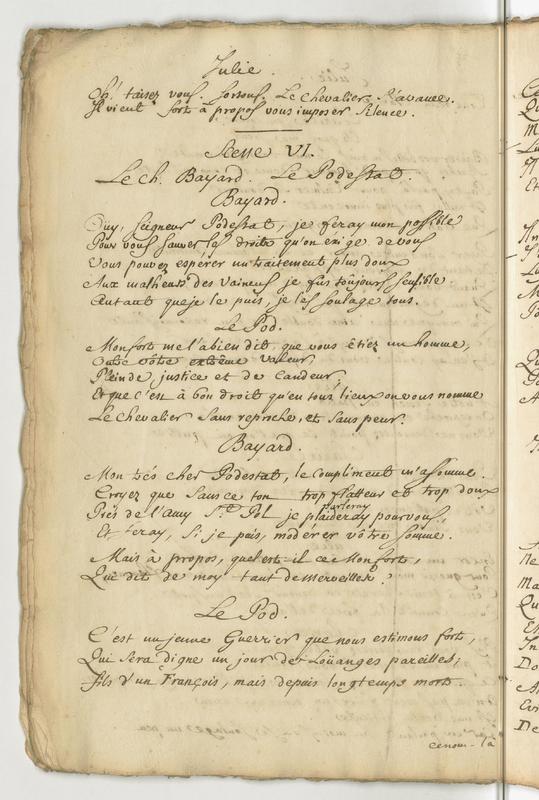 Julie.
Oh! taisez vous. Sortons. Le Chevalier s'avance.
Il vient fort à propos vous imposer silence.
Scene VI.
Le ch. Bayard. Le Podestat.
Bayard.
Ouy, Seigneur Podestat, je feray mon possible
Pour vous sauver les droits qu'on exige de vous
Vous pouvez espérer un traitement plus doux
Aux malheurs des Vaincus je fus toûjours sensible.
Autant que je le puis, je les soulage tous.
Le Pod.
Monfort me l'a bien dit que vous êtiez un homme,
Outre vôtre extrême valeur
Plein de justice et de candeur,
Et que c'est à bon droit qu'en tous lieux on vous nomme
Le Chevalier sans reproche, et sans peur.
Bayard.
Mon très cher Podestat, le compliment m'assomme.
Croyez que sans ce ton trop flatteur et trop doux
parleray
Près de l'Amy St. Pol je plaideray pour vous,
Et feray, si je puis, modérer vôtre somme.
Mais à propos, quel est-il ce Monfort,
Qui dit de moy tant de merveilles?
Le Pod.
C'est un jeune Guerrier que nous estimons fort,
Qui sera digne un jour de Loüanges pareilles;
fils d'un François, mais depuis longtemps mort.
ce nom-là